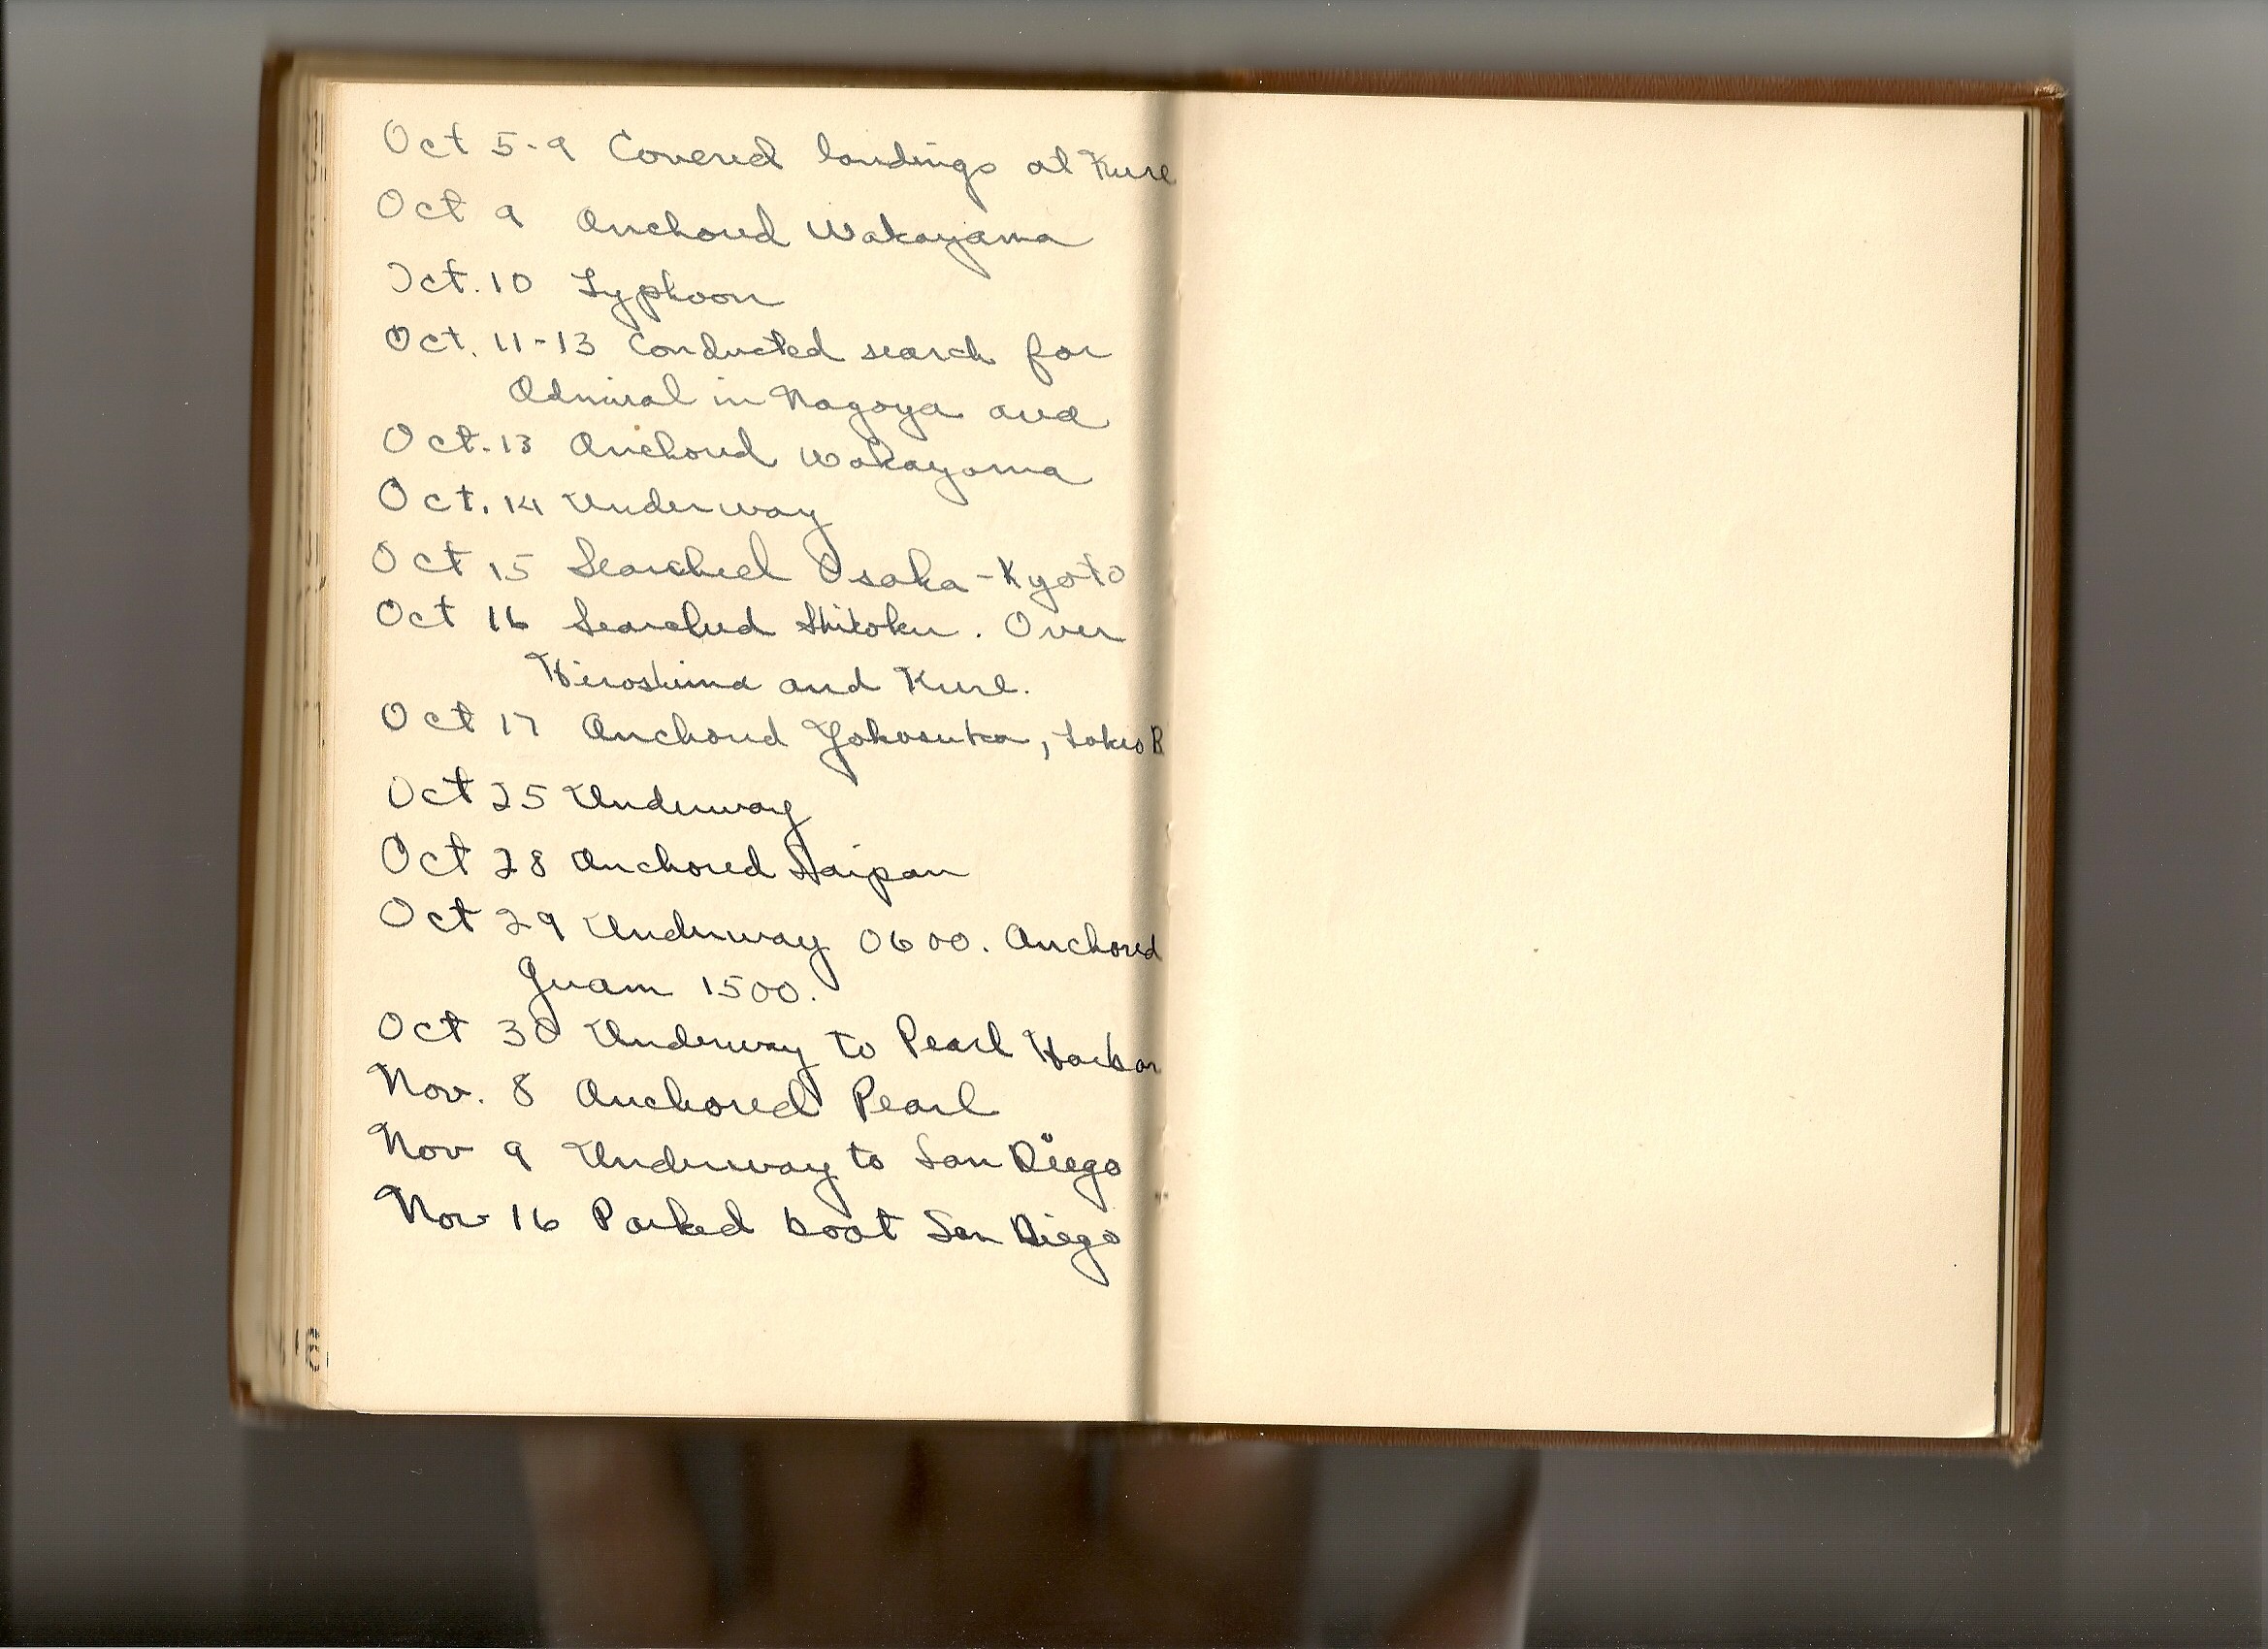 Oct 5-9 Covered landings at Kure
Oct 9 Anchored Wakayama
Oct. 10 Typhoon
Oct. 11-13 Conducted search for
Admiral in Nagoya area
Oct. 13 Anchored Wakayama
Oct. 14 Underway
Oct 15 Searched Osaka-Kyoto
Oct 16 Searched Shikoku. Over
Hiroshima and Kure.
Oct 17 Anchored Yokosuka, Tokio B
Oct 25 Underway
Oct 28 Anchored Saipan
Oct 29 Underway 0600. Anchored
Guam 1500.
Oct 30 Underway to Pearl Harbor
Nov. 8 Anchored Pearl
Nov 9 Underway to San Diego
Nov 16 Parked boat San Diego